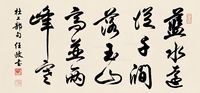 藍水遠
從千澗
落玉山
高並兩
峰寒
杜工部句任政書